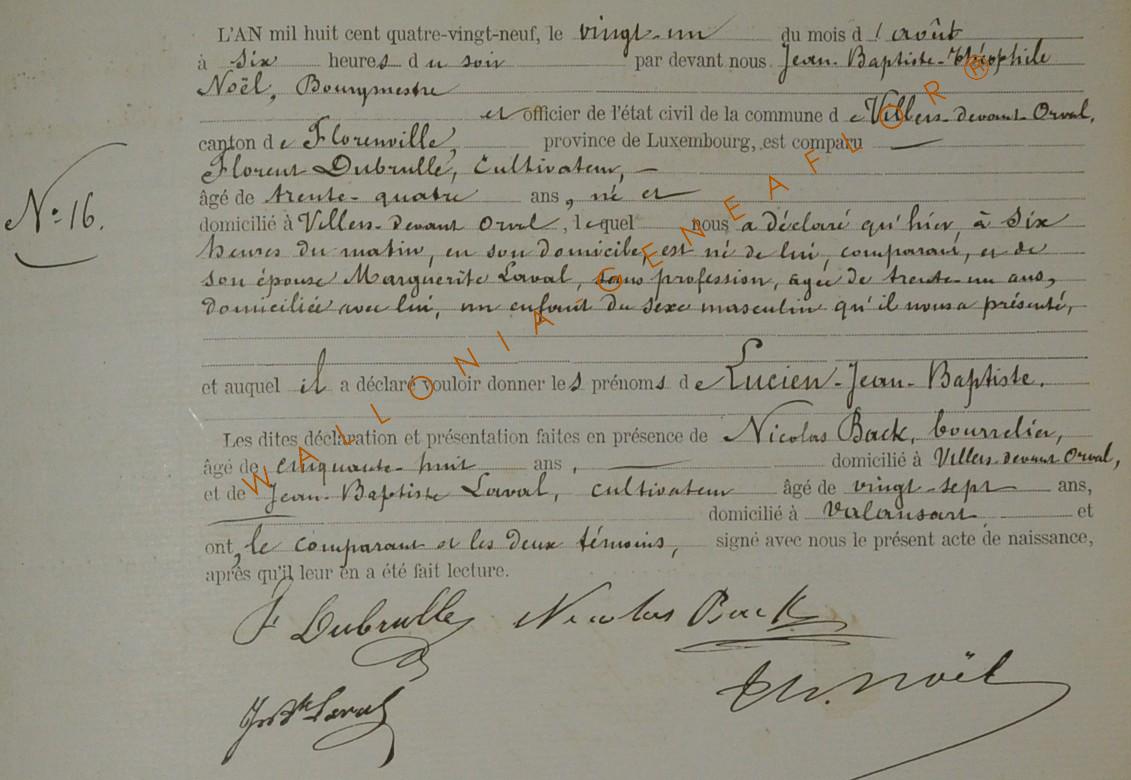 L'AN mil huit cent quatre-vingt-neuf, le vingt-un du mois d'août
à six heures du soir par devant nous Jean-Baptiste-Théophile
Noël, Bourgmestre
et officier de l'état civil de la commune de Villers-devant Orval,
canton de Florenville, province de Luxembourg, est comparu
Florent Dubrulle, Cultivateur, —
âgé de trente-quatre ans, né et
domicilié à Villers-devant Orval, lequel nous a déclaré qu'hier, à six
heures du matin, en son domicile, est né de lui, comparant, et de
son épouse Marguerite Laval, sans profession, âgée de trente-un ans,
domiciliée avec lui, un enfant du sexe masculin qu'il nous a présenté,
N° 16.
et auquel il a déclaré vouloir donner les prénoms de Lucien-Jean-Baptiste.
Les dites déclaration et présentation faites en présence de Nicolas Back, bourrelier,
âgé de cinquante-huit ans, — domicilié à Villers-devant Orval,
et de Jean-Baptiste Laval, cultivateur âgé de vingt-sept ans,
domicilié à Valansart, et
ont, le comparant et les deux témoins, signé avec nous le présent acte de naissance,
après qu'il leur en a été fait lecture.
F Dubrulle Nicolas Back
Jn Bte Laval Th. Noël
WALLONIA - GENEAFLOR ®